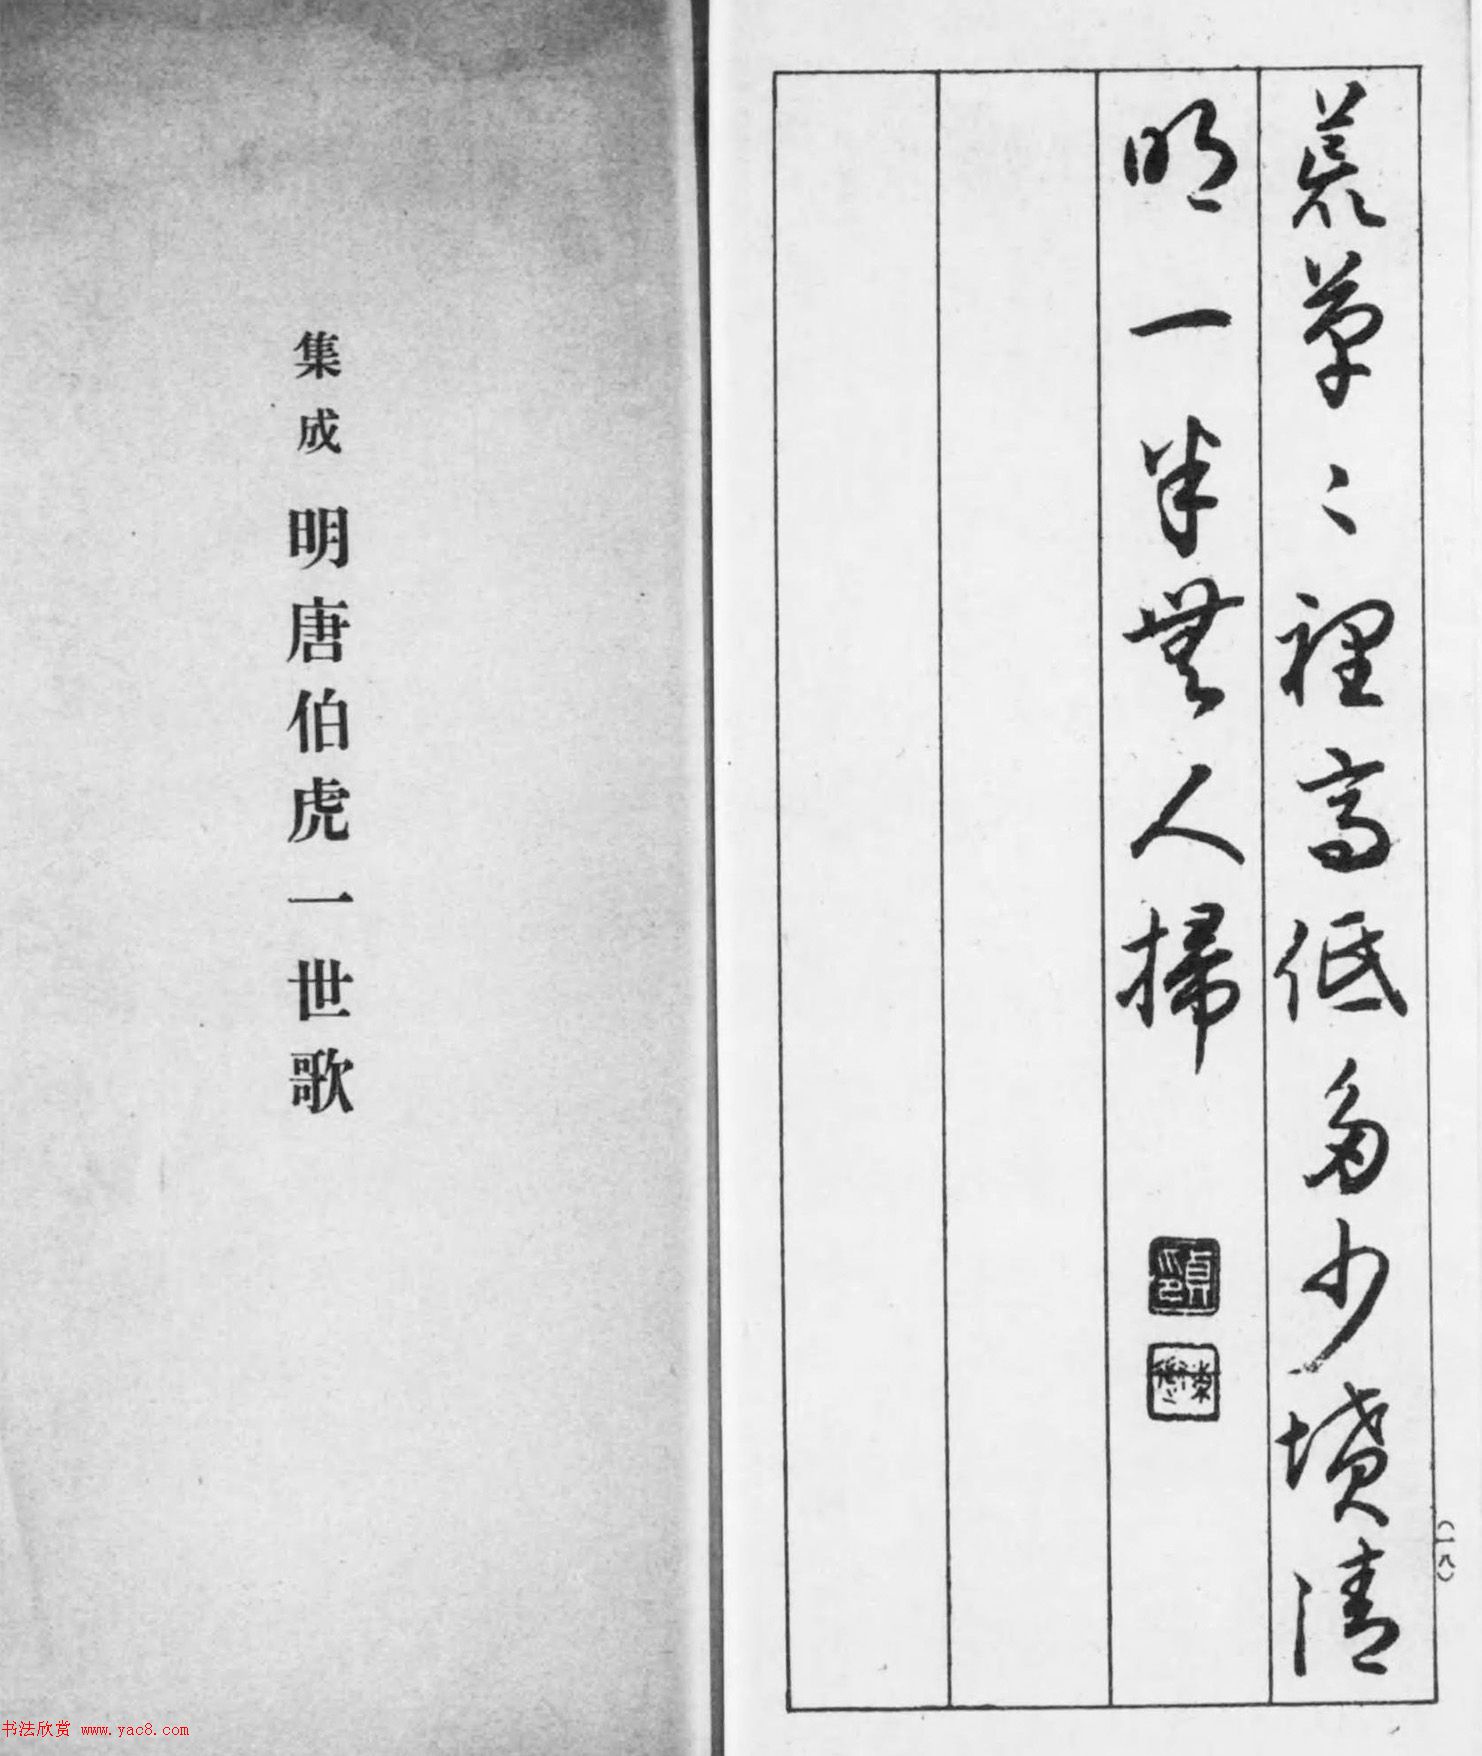 荒草々裡高低多少墳清
明一半無人掃
(一八)
集成 明唐伯虎一世歌
书法欣赏 www.yac8.com